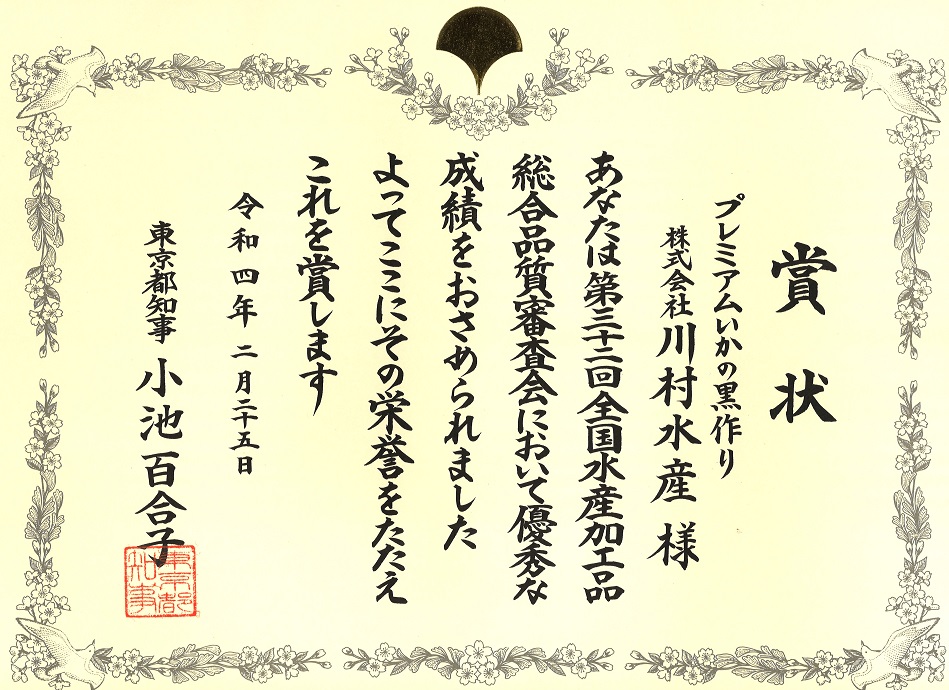 賞状
プレミアムいかの黒作り
株式会社 川村水産 様
あなたは第三十二回全国水産加工品
総合品質審査会において優秀な
成績をおさめられました
よってここにその栄誉をたたえ
これを賞します
令和四年二月二十五日
東京都知事 小池百合子
東京都
知事